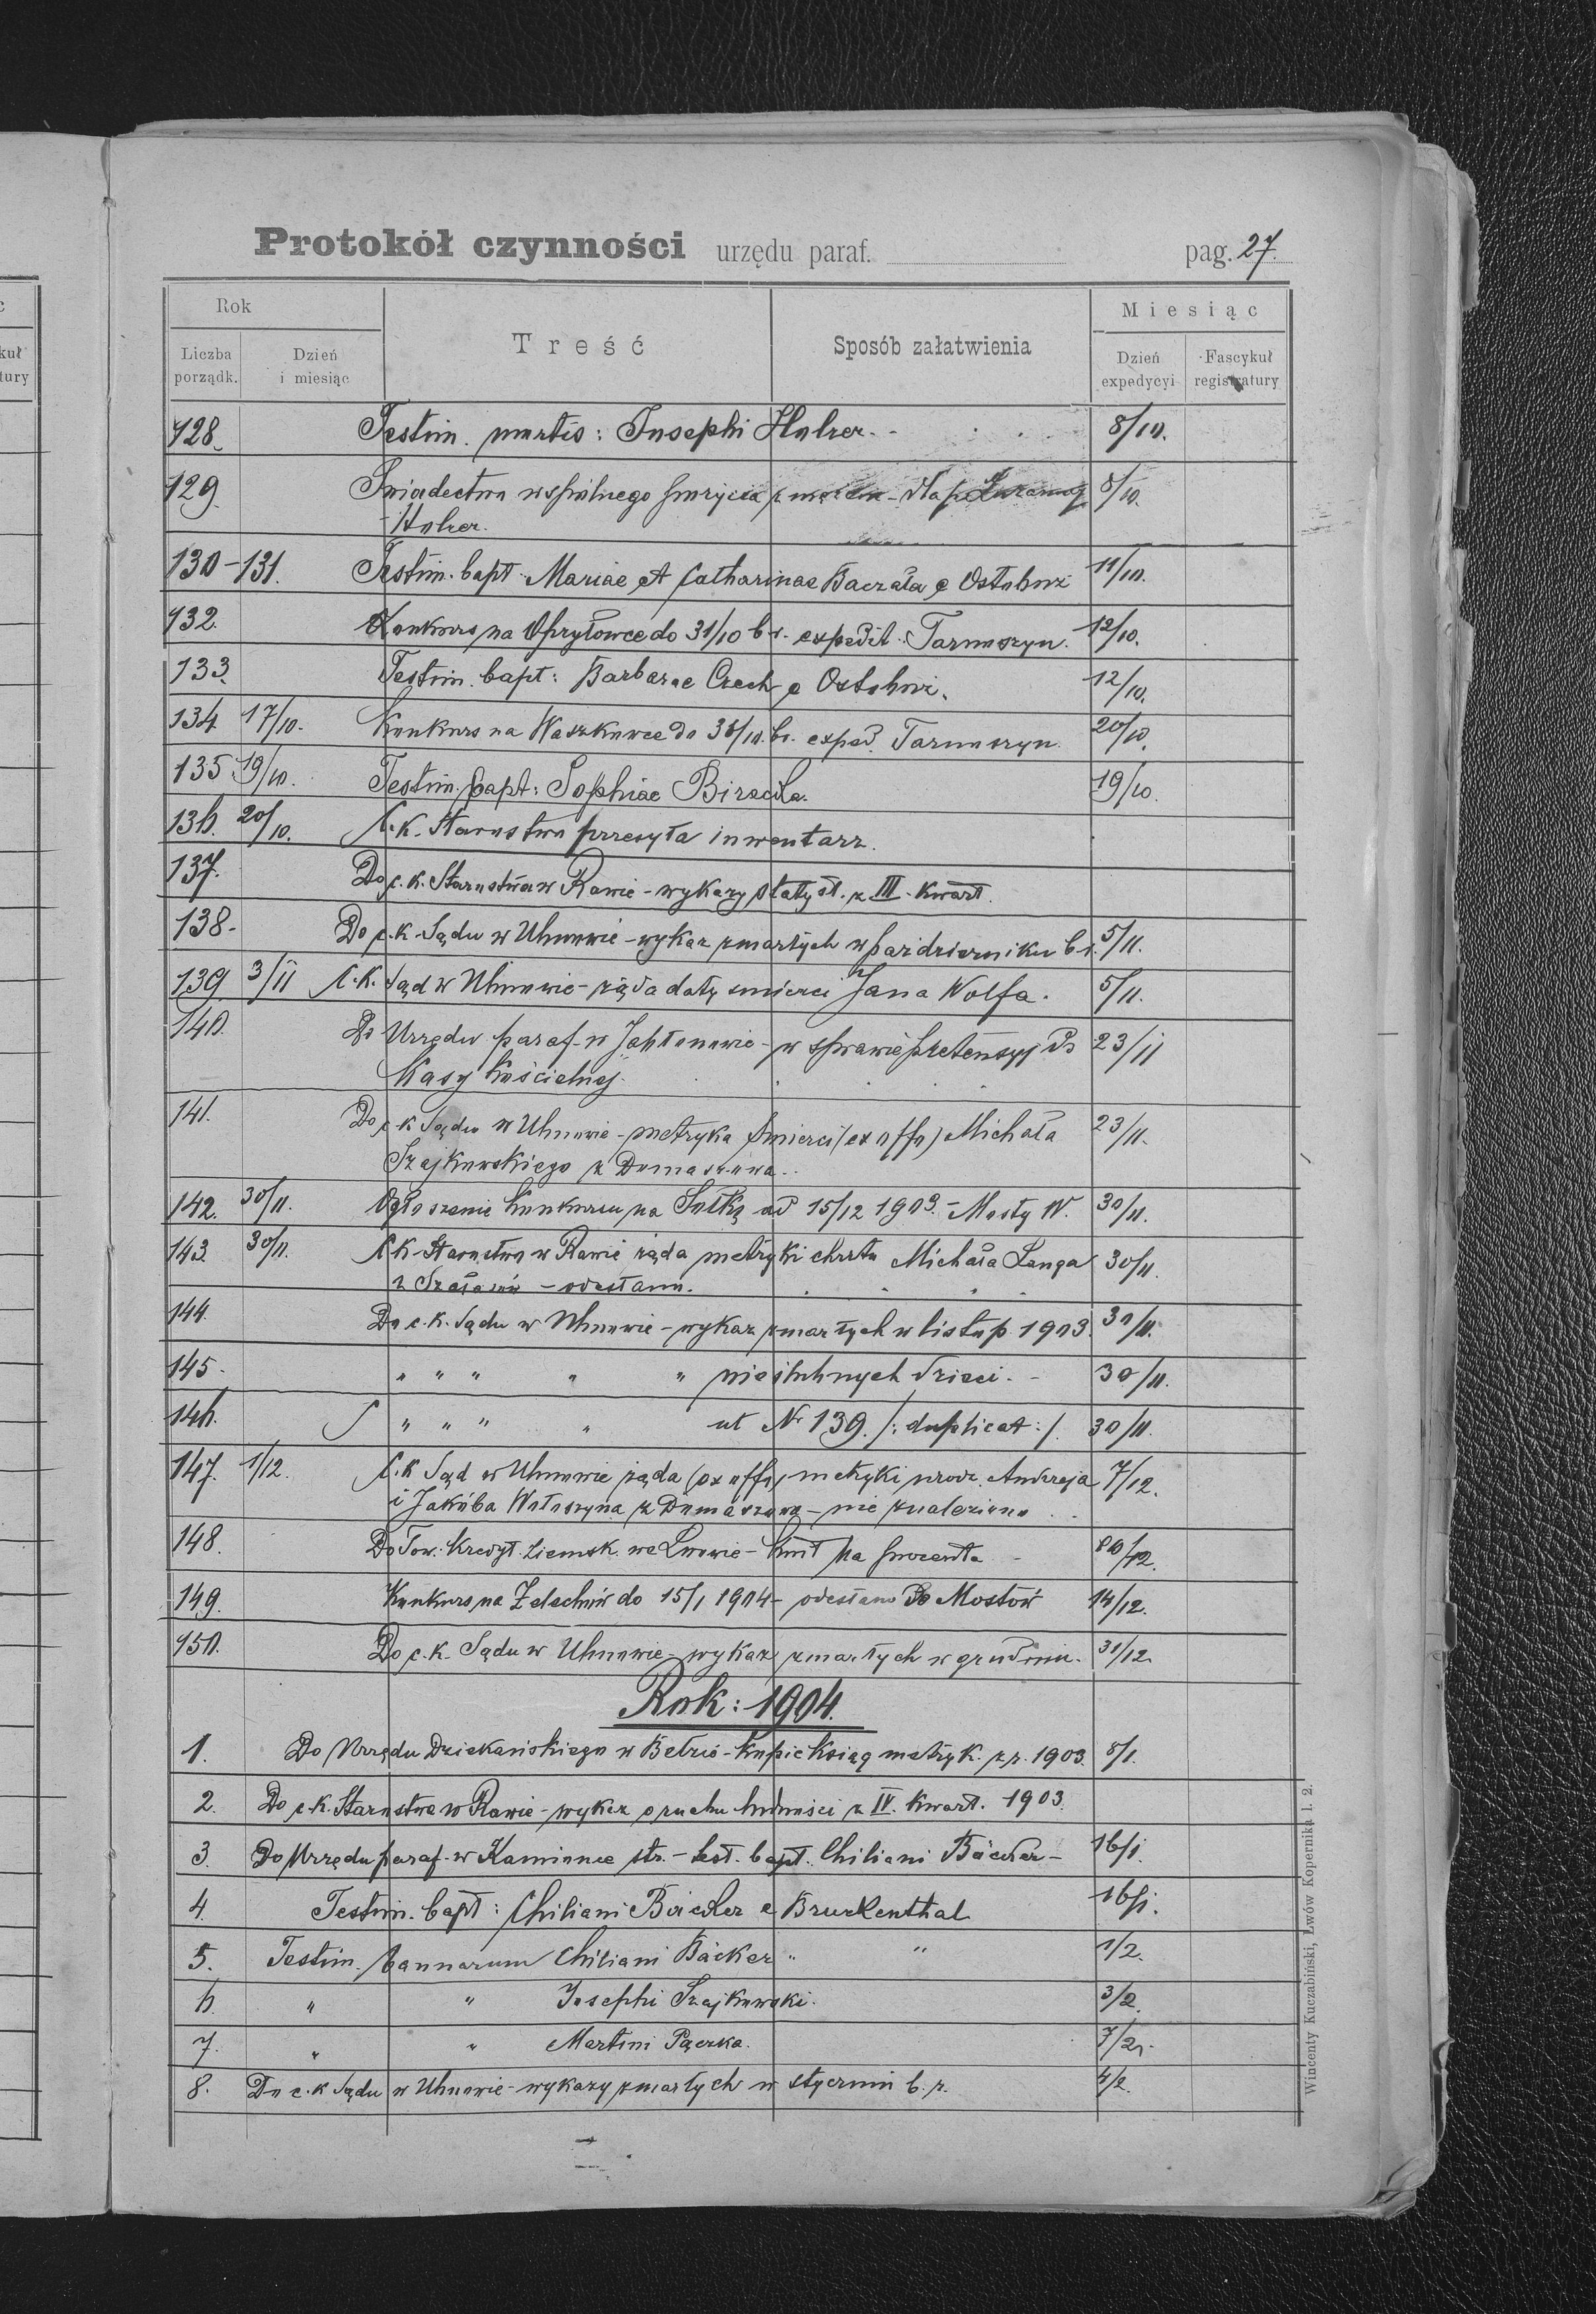 Protokół czynności urzędu paraf. pag. 27.
Rok
Treść
Sposób załatwienia
Miesiąc
Liczba porządk.
Dzień i miesiąc
Dzień expedycyi
Fascykuł registratury
128. Testim. mortis: Josephi Holzer. 8/10.
129. Świadectwo wspólnego pożycia z mężem - dla p. 8/10.
Holzer.
130-131. Testim. bapt. Mariae et Catharinae Baczała e Ostobuż 11/10.
132. Konkurs na Opryłowce do 31/10 b.r. expedit. Tarnoszyn. 12/10.
133. Testim. bapt: Barbarae Czech e Ostobuż. 12/10.
134 17/10. Konkurs na Waszkowce do 31/10. b.r. exped. Tarnoszyn. 20/10.
135 19/10. Testim. bapt: Sophiae 19/10.
136. 20/10. C.k. Starostwo przesyła inwentarz.
137. Do c.k. Starostwa w Rawie - wykazy statyst. z III. kwart.
138. Do c.k. Sądu w Uhnowie - wykaz zmarłych w październiku b.r. 5/11.
139. 3/11 C.k. Sąd w Uhnowie - żąda daty śmierci Jana Wolfa. 5/11.
140. Do Urzędu paraf. w Jabłonowie - w sprawie pretensyj do 23/11
Kasy kościelnej.
141. Do c.k. Sądu w Uhnowie - metryka śmierci (ex offo) Michała 23/11.
Szajkowskiego z Domaszowa.
142. 30/11. Ogłoszenie Konkursu na do 15/12 1903. - Mosty W. 30/11.
143. 30/11. C.k. Starostwo w Rawie żąda metryki chrztu Michała Langa 30/11.
z - odesłano.
144. Do c.k. Sądu w Uhnowie - wykaz zmarłych w listop. 1903. 30/11.
145. " " " " " nieślubnych dzieci. - 30/11.
146. " " " " ut Nr 139. /: duplicat :/. 30/11.
147. 1/12. C.k. Sąd w Uhnowie żąda (ex offo) metryki urodz. Andrzeja 7/12.
i Jakóba Wołoszyna z Domaszowa - nie znaleziono
148. Do Tow. Kredyt. ziemsk. we Lwowie - kwit na procenta - 10/12.
149. Konkurs na Żelechów do 15/1 1904 - odesłano do Mostów 14/12.
150. Do c.k. Sądu w Uhnowie - wykaz zmarłych w grudniu. 31/12.
Rok: 1904.
1. Do Urzędu Dziekańskiego w Bełzie - kopie ksiąg metryk. z r. 1903. 8/1.
2. Do c.k. Starostwa w Rawie - wykaz o ruchu ludności z IV. kwart. 1903.
3. Do Urzędu paraf. w Kamionce str. - test. bapt. Chiliani Bäcker - 16/1.
4. Testim. bapt: Chiliani Bäcker e Bruckenthal 16/1.
5. Testim. bannorum Chiliani Bäcker " " 1/2.
6. " " Josephi Szajkowski. 3/2.
7. " " Martini Pączka. 7/2.
8. Do c.k. Sądu w Uhnowie - wykazy zmarłych w styczniu b.r. 4/2.
Wincenty Kuczabiński, Lwów Kopernika l. 2.